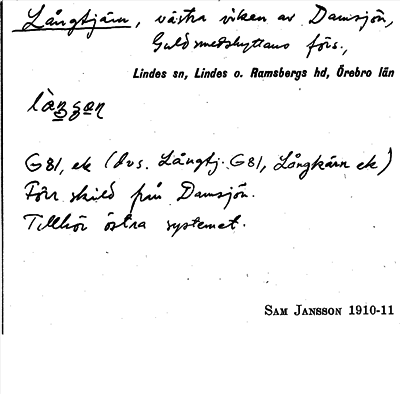 Långtjärn, västra viken av Damsjön,
Guldsmedshyttans förs.,
Lindes sn, Lindes o. Ramsbergs hd, Örebro län
G81, ek (dvs. Långtj. G81, Långkärn ek)
Förr skild från Damsjön.
Tillhör östra systemet.
SAM JANSSON 1910-11